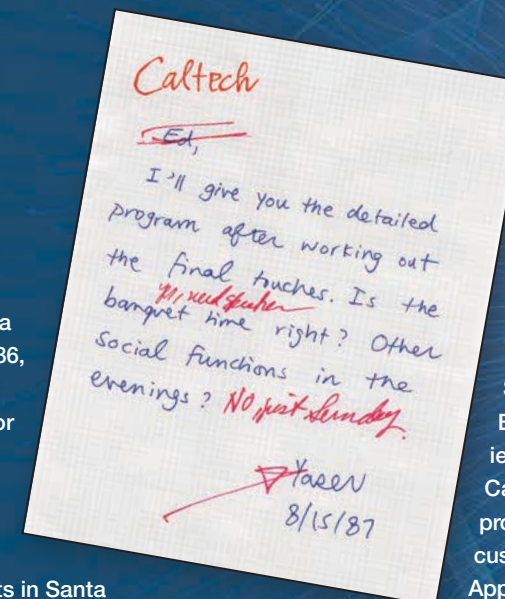 Caltech
Ed,
I'll give you the detailed
program after working out
the final touches. Is the
banquet time right? Other
social functions in the
evenings? No, just Sunday.
Yaser
8/15/87
a
36,
or
ts in Santa
S
E
ie
Ca
pro
cus
App